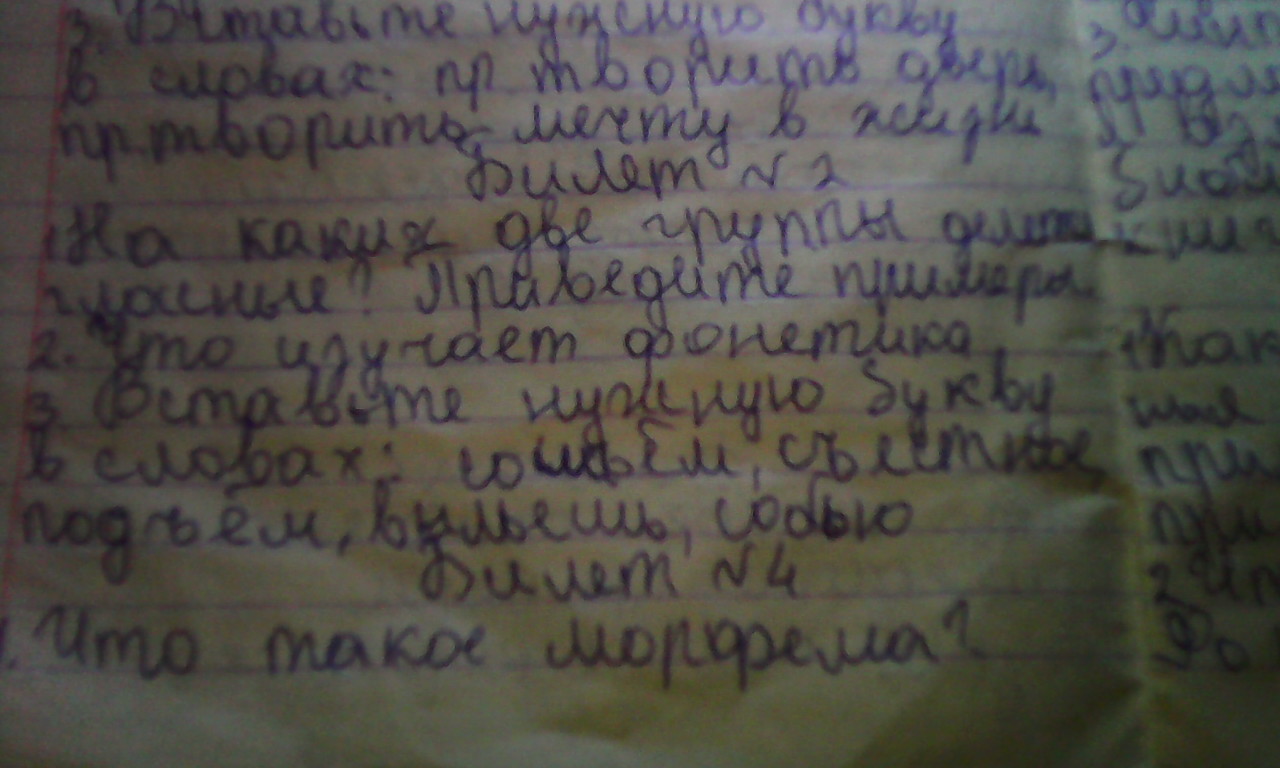 3. Вставьте нужную букву
в словах: пр творить дверь,
пр.творить мечту в жизни
Билет №2
1 На каких две группы делятся
гласные? Приведите примеры.
2. Что изучает фонетика
3 Вставьте нужную букву
в словах: сошьём, съестное
подъём, выльешь, собью
Билет №4
1. Что такое морфема?
3.
2 Что